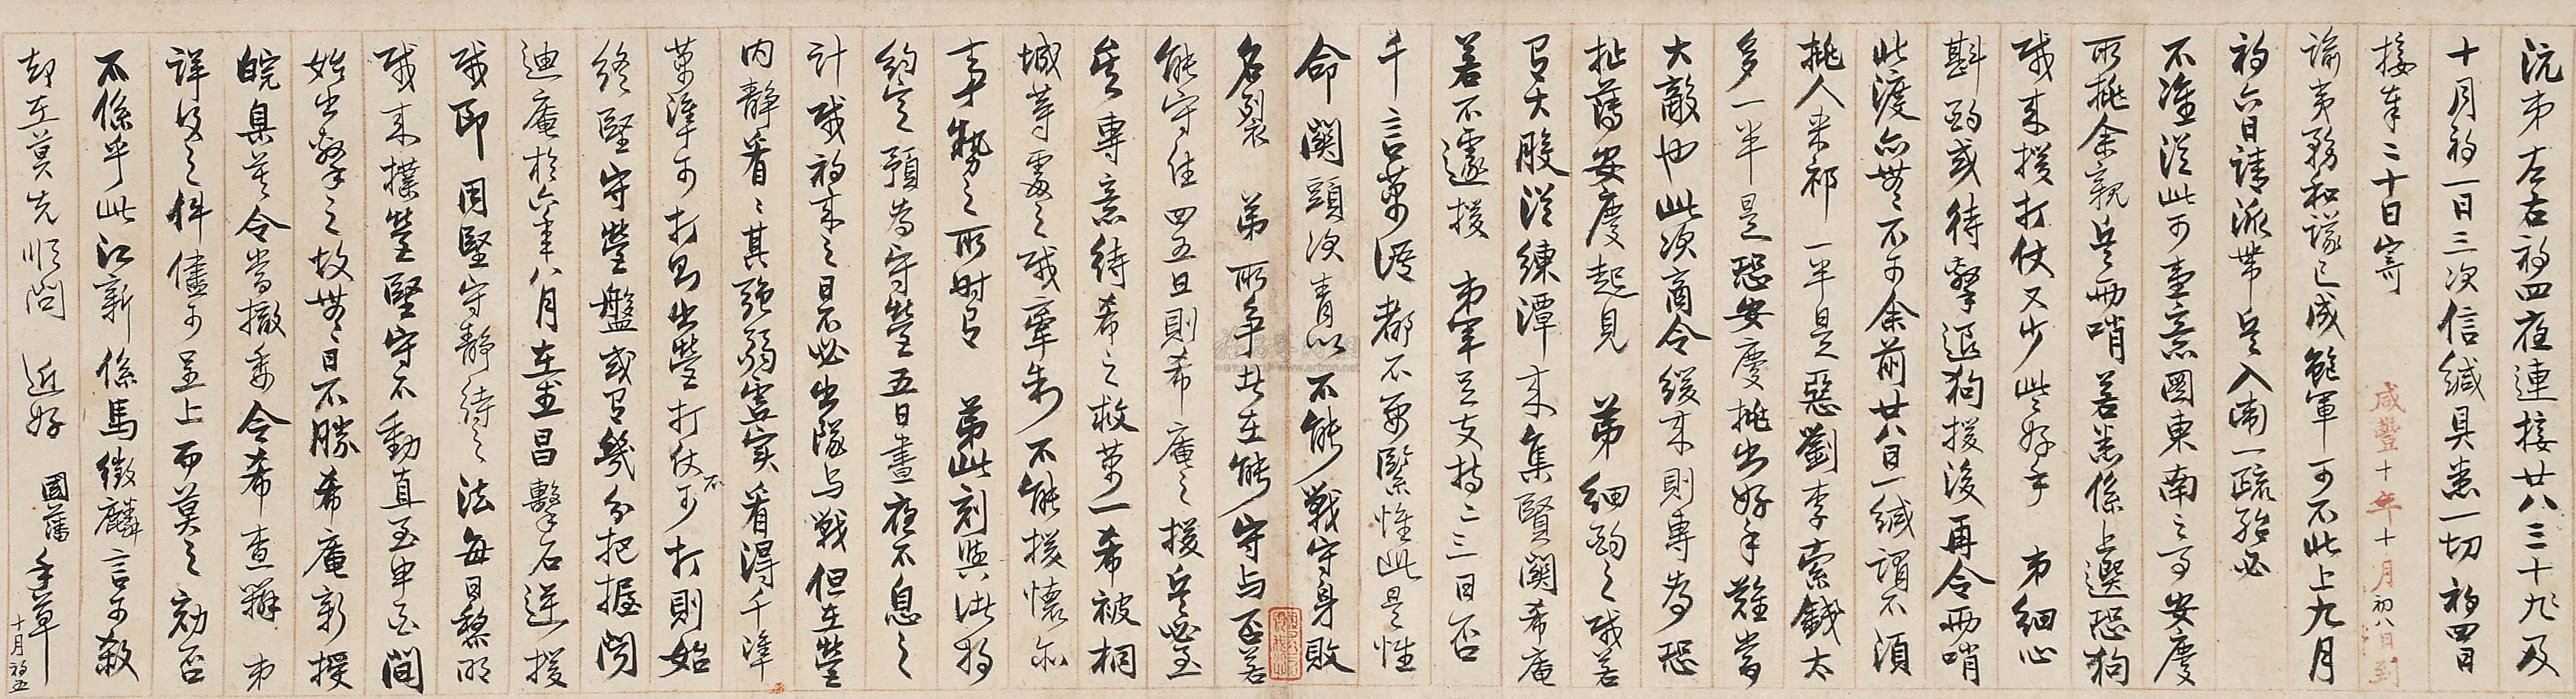 沅弟左右初四夜連接廿八三十九及
十月初一日三次信緘具悉一切初四日
接奉二十日寄
咸豐十年十月初八日到
諭夷務和議已成鮑軍可不北上九月
初六日請派帶兵入衛一疏殆必
不准從此可壹意圖東南之事安慶
所挑余親兵兩哨若悉係上選恐狗
賊來援打仗又少此好手弟細心
斟酌或待擊退狗援後再令兩哨
此渡亦無不可余前廿八日一緘謂不須
挑人來祁一半是惡劉李索錢太
多一半是恐安慶挑出好手難當
大敵也此次商令緩來則專為恐
扯薄安慶起見弟細酌之賊若
有大股從練潭來集賢關希庵
若不遽援弟軍足支持二三日否
千言萬語都不要緊惟此是性
命關頭次青以不能戰守身敗
名裂弟所爭者在能守與否若
能守住四五日則希庵之援兵必至
矣專意待希之救萬一希被桐
城等處之賊牽制不能援懷亦
事勢之所時有弟此刻與諸將
約定預為守營五日晝夜不息之
計賊初來之日不必出隊與戰但在營
內靜看看其強弱虛實看得千準
萬準可打則出營打仗不可打則始
終堅守營盤或有幾分把握聞
迪庵於六年八月在武昌擊石逆援
賊即用堅守靜待之法每日黎明
賊來撲營堅守不動直至申酉間
始出擊之故無日不勝希庵新授
皖臬若令當撤委令希查辦弟
詳復之件儘可呈上而莫之劾否
不係乎此江新係馬徵麟言可殺
却在莫先順問近好國藩手草
十月初五